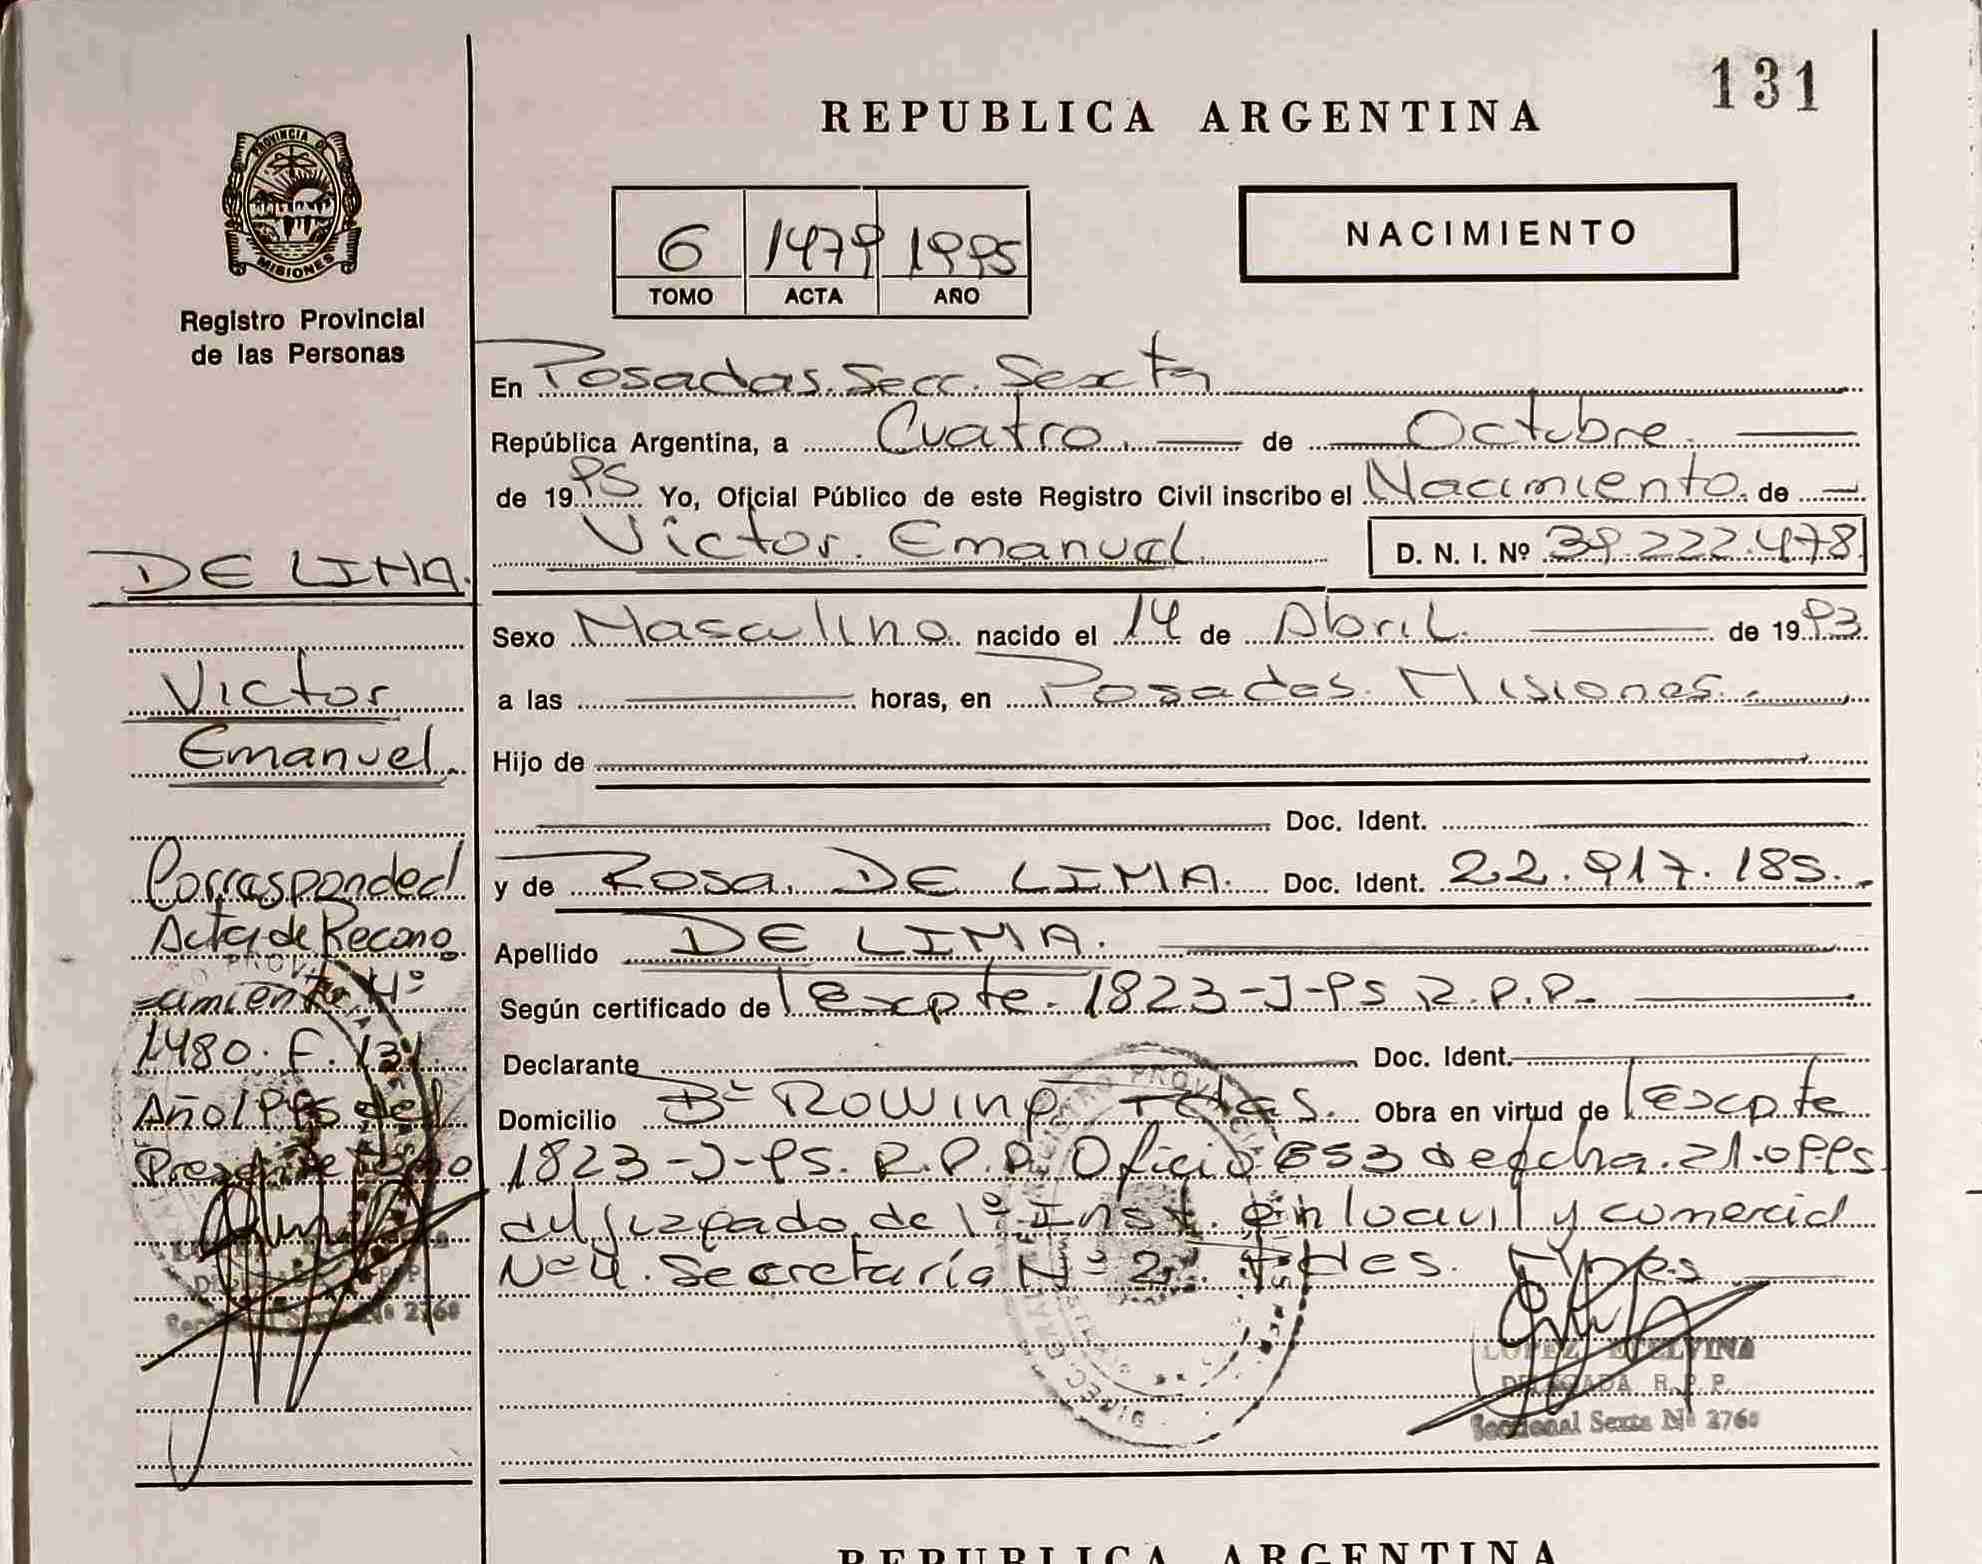 131
REPUBLICA ARGENTINA
PROVINCIA DE
MISIONES
Registro Provincial
de las Personas
6 1479 1995
TOMO ACTA AÑO
NACIMIENTO
En Posadas. Secc. Sexta
República Argentina, a Cuatro. de Octubre.
de 1995 Yo, Oficial Público de este Registro Civil inscribo el Nacimiento. de
Victor. Emanuel. D. N. I. Nº 39.222.478
Sexo Masculino. nacido el 14 de Abril. de 1993
a las horas, en Posadas. Misiones.
Hijo de
Doc. Ident.
y de Rosa. DE LIMA. Doc. Ident. 22.917.185.
Apellido DE LIMA.
Según certificado de Expte. 1823-J-95 R.P.P.
Declarante Doc. Ident.
Domicilio Bº Rowing Obra en virtud de Expte
1823-J-95. R.P.P. Oficio 653 de fcha. 21.09.95
del juzgado de 1º Inst. en lo civil y comercial
Nº 4. Secretaría Nº 2.
LOPEZ ETELVINA
DELEGADA R.P.P.
Seccional Sexta Nº 2760
DE LIMA.
Victor
Emanuel.
Corresponde el
Acta de Recono
cimiento Nº
1480. F. 131.
Año 1995 del
Presente Tomo
Seccional Sexta Nº 2760
REPUBLICA ARGENTINA